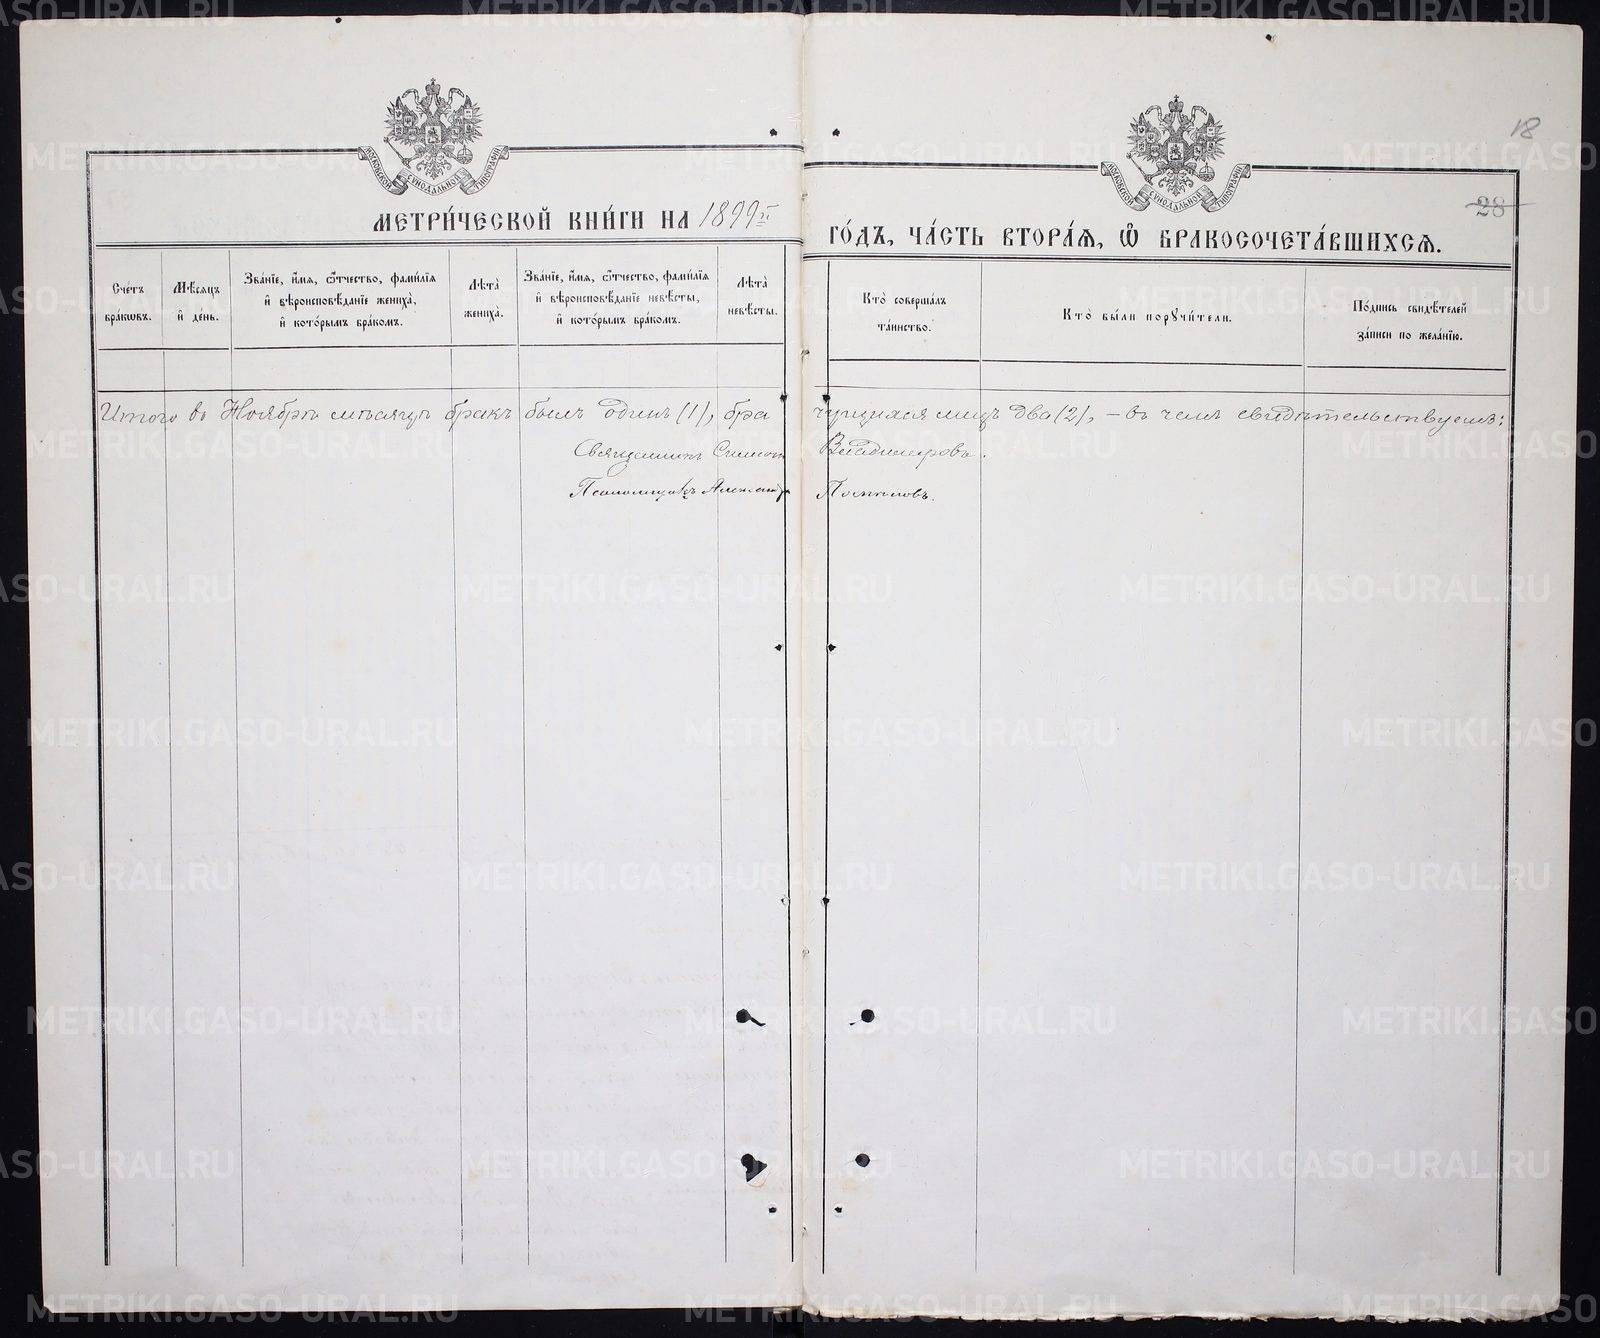 18
28
МОСКОВСКОЙ СѴНОДАЛЬНОЙ ТИПОГРАФИИ
МОСКОВСКОЙ СѴНОДАЛЬНОЙ ТИПОГРАФИИ
МЕТРИ́ЧЕСКОЙ КНИ́ГИ НА 1899й ГО́ДЪ, ЧА́СТЬ ВТОРА́Ѧ, Ѽ БРАКОСОЧЕТА́ВШИХСѦ.
Сче́тъ бра́ковъ.
Мѣ́сяцъ и҆ де́нь.
Зва́нїе, и҆́мя, ѻ҆́тчество, фами́лїя и҆ вѣроисповѣ́данїе жениха̀, и҆ кото́рымъ бра́комъ.
Лѣта̀ жениха̀.
Зва́нїе, и҆́мя, ѻ҆́тчество, фами́лїя и҆ вѣроисповѣ́данїе невѣ́сты, и҆ кото́рымъ бра́комъ.
Лѣта̀ невѣ́сты.
Кто̀ соверша́лъ та́инство.
Кто̀ бы́ли порꙋчи́тели.
По́дпись свидѣ́телей за́писи по жела́нїю.
Итого въ Ноябрѣ мѣсяцѣ бракъ былъ одинъ (1), брачущихся лицъ два (2), – въ чемъ свидѣтельствуемъ:
Священникъ Симеонъ Владимировъ.
Псаломщикъ Александръ Поспѣловъ.
METRIKI.GASO-URAL.RU